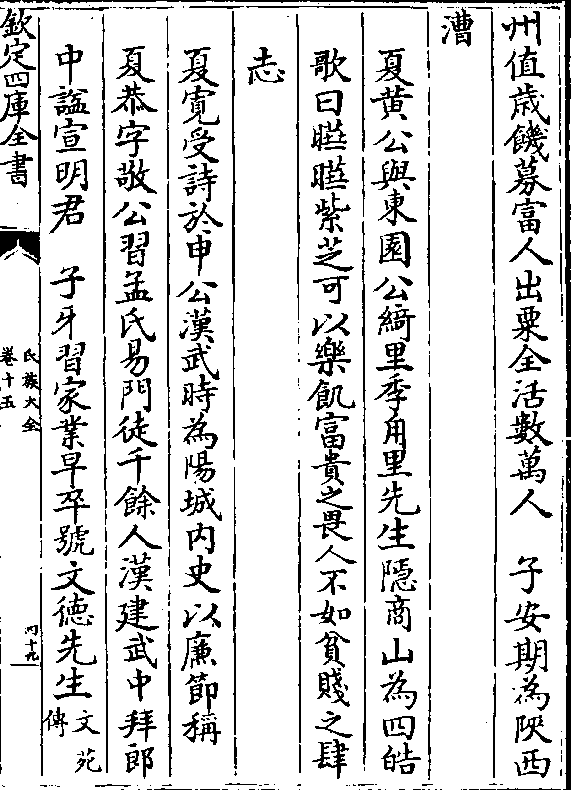 州值歳饑募富人出粟全活數萬人　子安期為陜西
漕
夏黄公與東園公綺里季甪里先生隱商山為四皓
歌曰曄曄紫芝可以樂飢富貴之畏人不如貧賤之肆
志
夏寛受詩於申公漢武時為陽城内史以廉節稱
夏恭字敬公習孟氏易門徒千餘人漢建武中拜郎
中諡宣明君　子牙習家業早卒號文德先生文苑傳
欽定四庫全書
氏族大全
卷十五
四十九